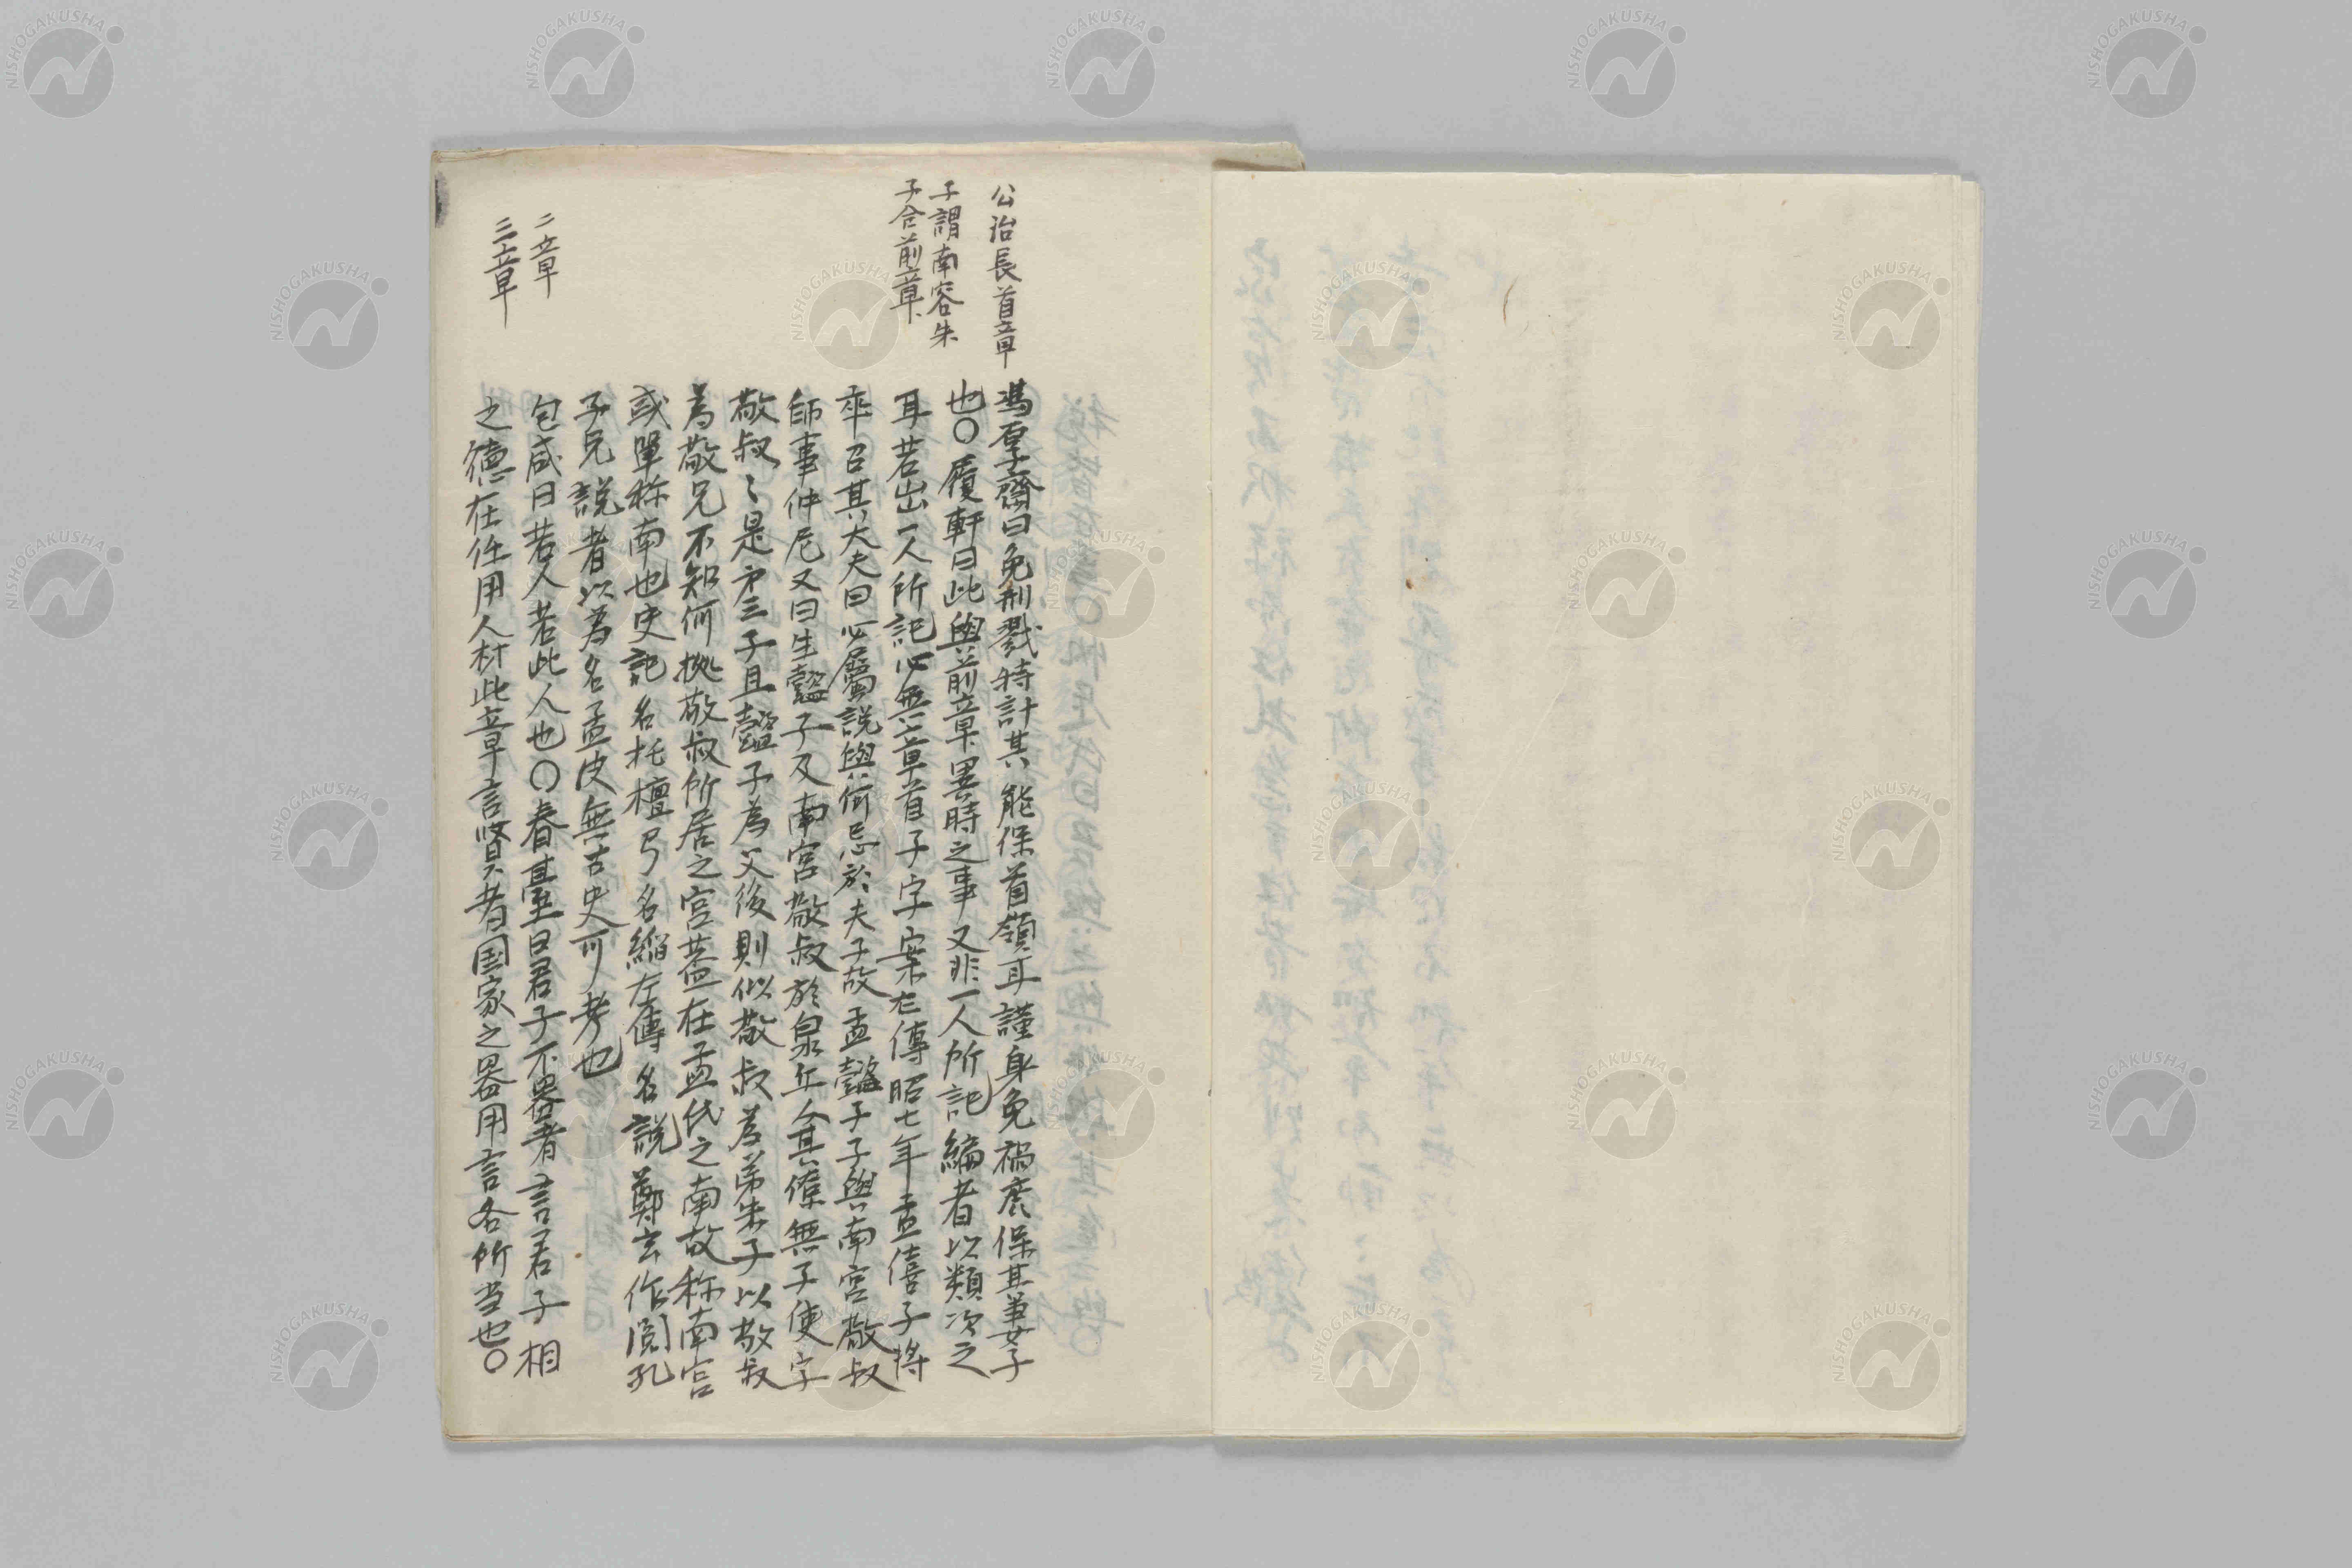 公治長首章
子謂南容朱
子合前章
二章
三章
馮厚齋曰免刑戮特計其能保首領耳謹身免禍庶保其妻子
也〇履軒曰此與前章異時之事又非一人所記編者以類次之
耳若出一人所記必無二章首子字案左傳昭七年孟僖子将
卒召其大夫曰必屬説與何忌於夫子故孟懿子子與南宮敬叔
師事仲尼又曰生懿子及南宮敬叔於泉丘人其僚無子使字
敬叔〻是第三子且懿子為父後則似敬叔為弟朱子以敬叔
為敬兄不知何拠敬叔所居之宮蓋在孟氏之南故称南宮
或單称南也史記名括檀弓名縚左傳名説鄭玄作閲孔
子兄説者以為名孟皮無古史可考也
包咸曰若人若此人也〇春臺曰君子不器者言君子相
之德在任用人材此章言賢者国家之器用言各所当也〇
NISHOGAKUSHA